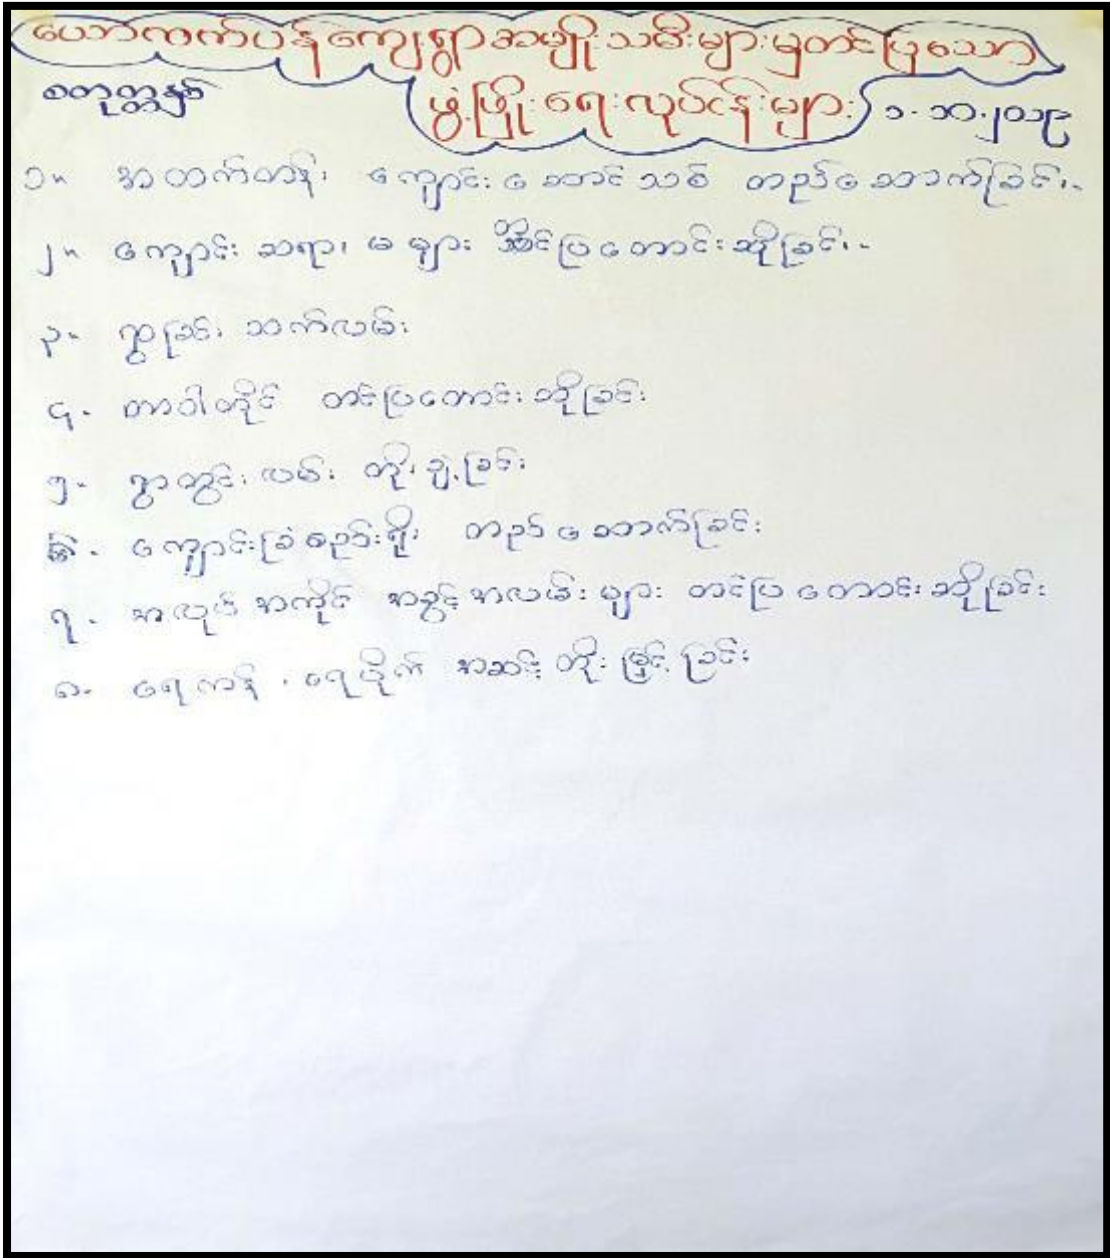 ယော်ကက်ပန်ကျေးရွာအမျိုးသမီးများမှတင်ပြသော
စတုတ္ထနှစ် ဖွံ့ဖြိုးရေးလုပ်ငန်းများ ၁.၁၀.၂၀၁၉
၁။ အထက်တန်း ကျောင်းဆောင်သစ် တည်ဆောက်ခြင်း
၂။ ကျောင်း ဆရာ၊ မ များ တင်ပြတောင်းဆိုခြင်း
၃။ ရွာခြင်း ဆက်လမ်း
၄။ တာဝါတိုင် တင်ပြတောင်းဆိုခြင်း
၅။ ရွာတွင်း လမ်း တိုးချဲ့ခြင်း
၆။ ကျောင်းခြံစည်းရိုး တည်ဆောက်ခြင်း
၇။ အလုပ်အကိုင် အခွင့်အလမ်းများ တင်ပြတောင်းဆိုခြင်း
၈။ ရေကန်၊ ရေပိုက် အဆင့်တိုးမြှင့်ခြင်း